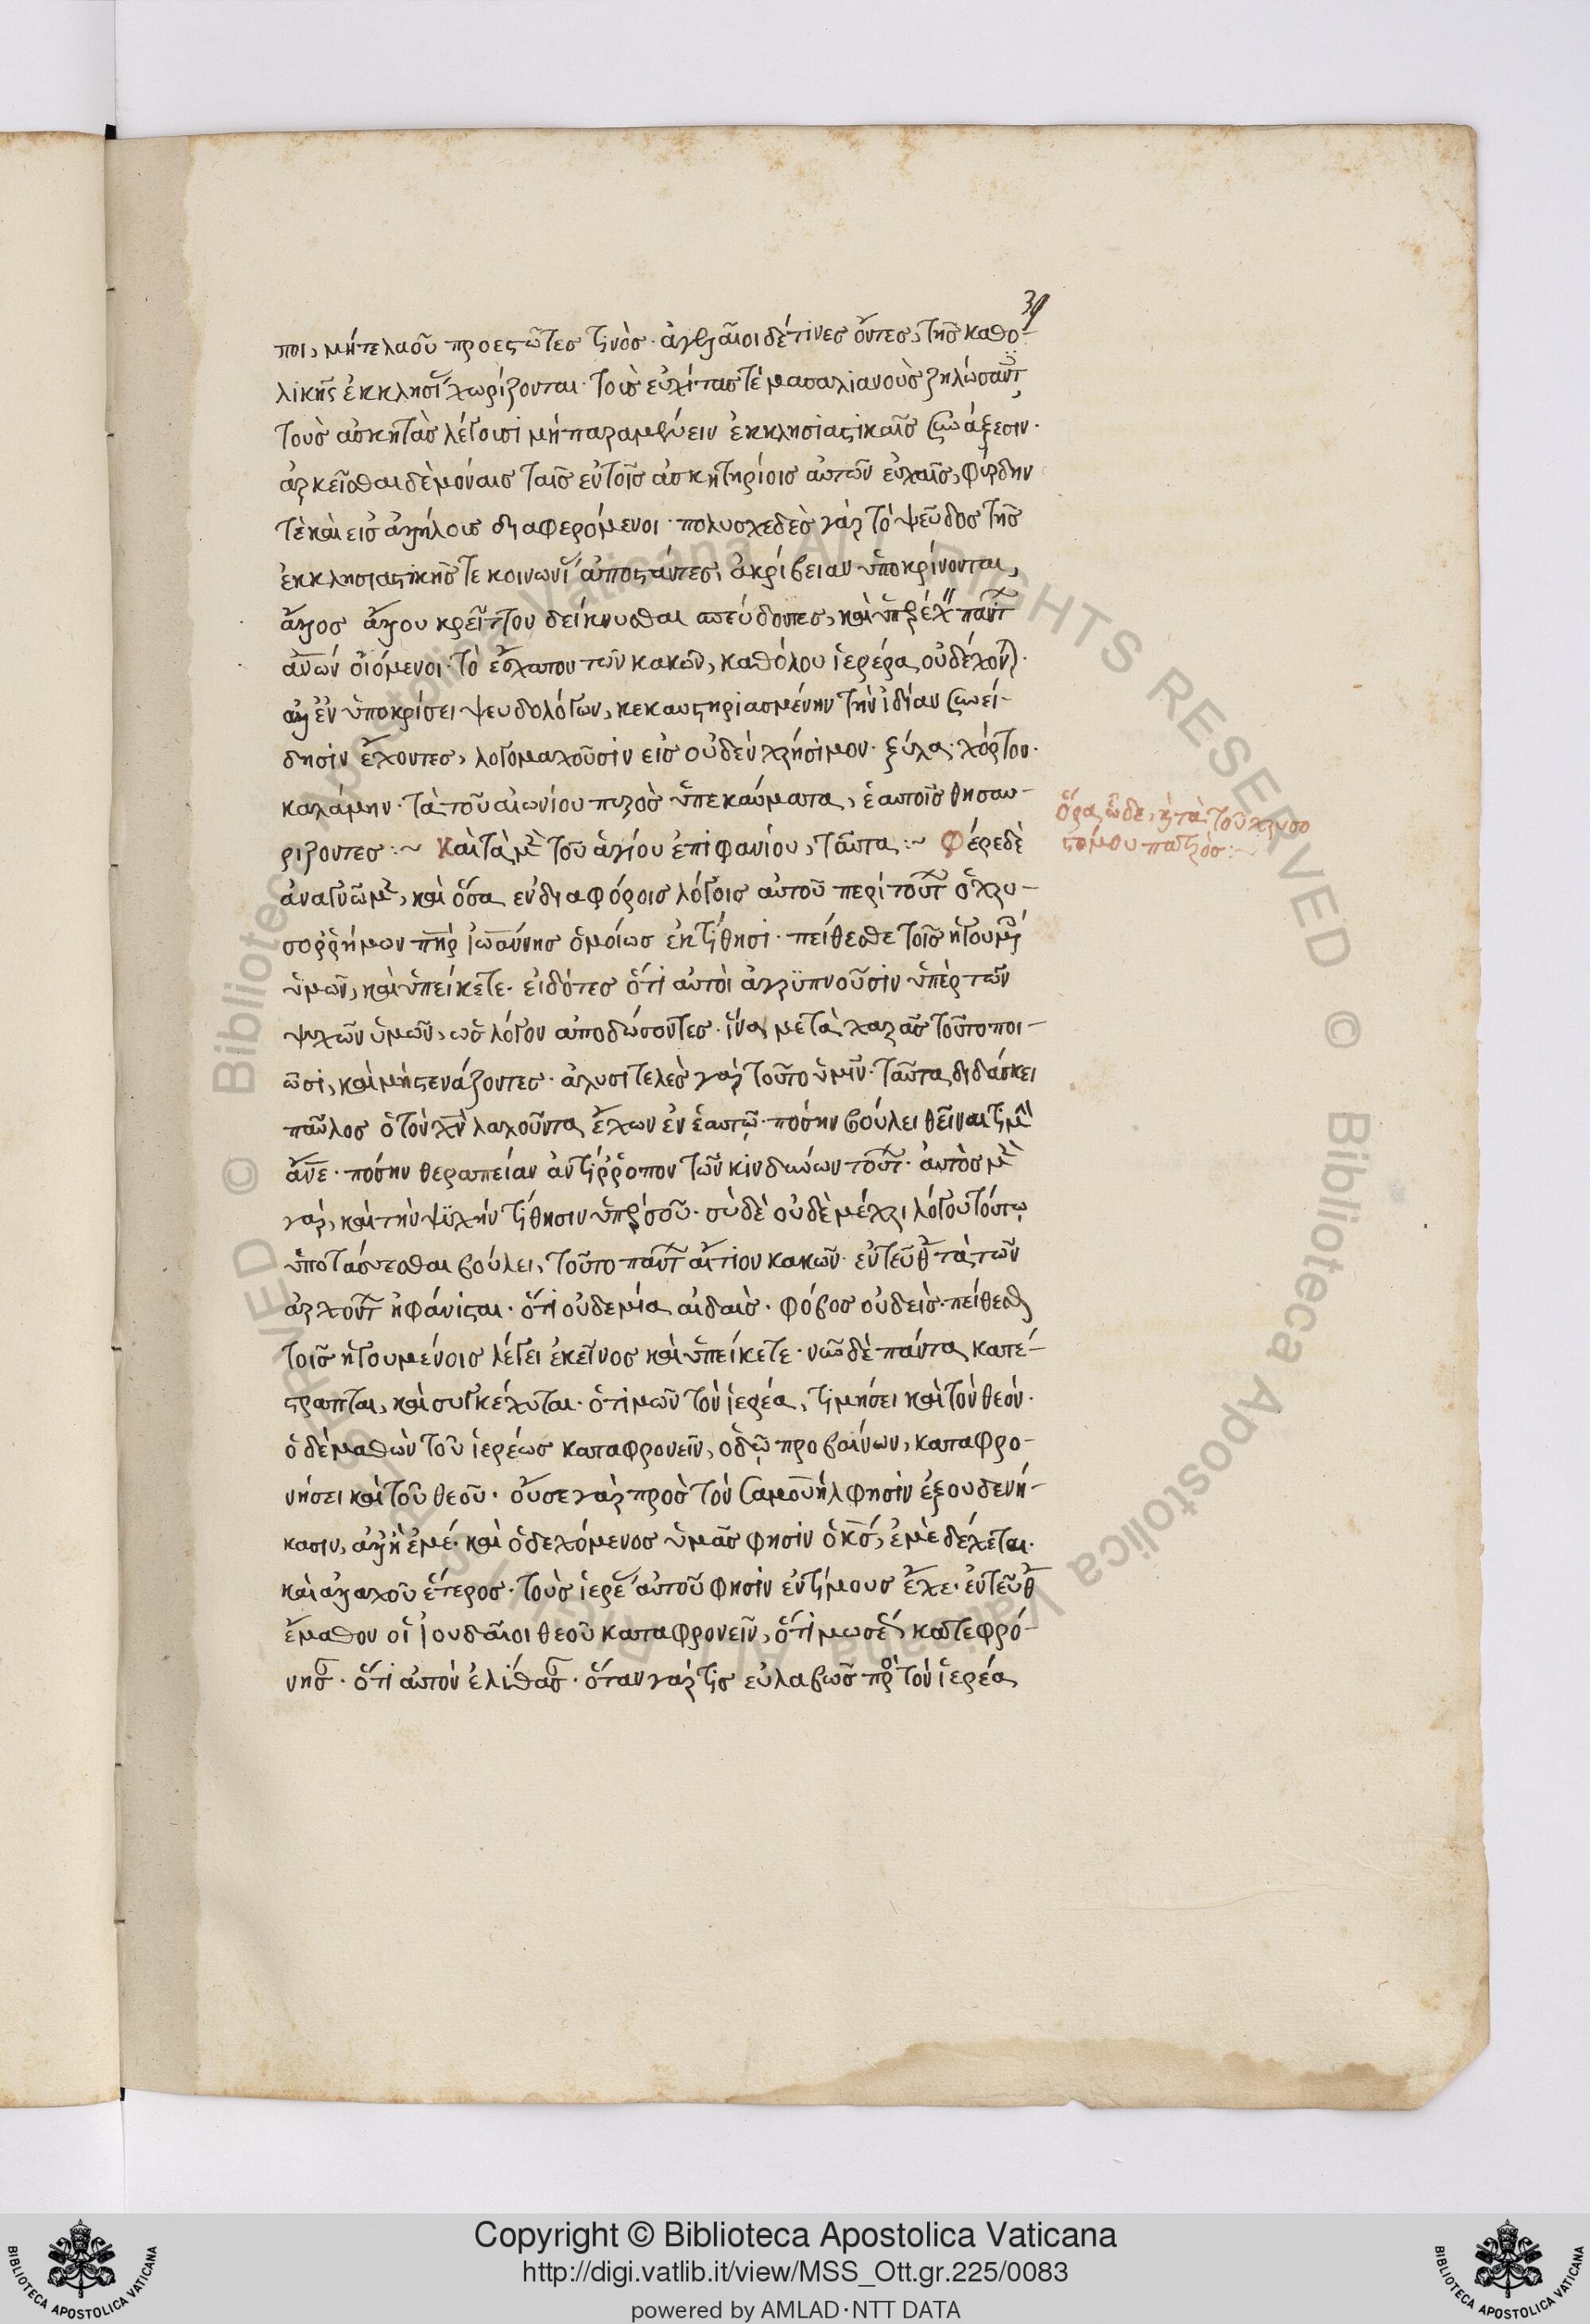 39
ποι, μήτε λαοῦ προεστῶτες τινός· ἀγελαῖοι δέ τινες ὄντες, τῆς καθο-
λικῆς ἐκκλησί χωρίζονται· τοὺς εὐχίτας τὲ μασαλιανοὺς ζηλώσαντ
τοὺς ἀσκητὰς λέγουσι μὴ παραμένειν ἐκκλησιαστικαῖς συνάξεσιν·
ἀρκεῖσθαι δὲ μόναις ταῖς ἐν τοῖς ἀσκητηρίοις αὐτῶν εὐχαῖς, φύρδην
τὲ καὶ εἰς ἀλλήλους διαφερόμενοι· πολυσχεδὲς γὰρ τὸ ψεῦδος τῆς
ἐκκλησιαστικῆς τε κοινωνί ἀποστάντες, ἀκρίβειαν ὑποκρίνονται,
ἄλλος ἄλλου κρεῖττον δείκνυσθαι σπεύδοντες, καὶ ὑπερέχ παντ
ἀνων οἰόμενοι· τὸ ἔσχατον τῶν κακῶν, καθόλου ἱερέα οὐ δέχοντ·
ἀλλ' ἐν ὑποκρίσει ψευδολόγων, κεκαυστηριασμένην τὴν ἰδίαν συνεί-
δησιν ἔχοντες, λογομαχοῦσιν εἰς οὐδὲν χρήσιμον· ξύλα· χόρτον·
καλάμην· τὰ τοῦ αἰωνίου πυρὸς ὑπεκαύματα, ἑαυτοῖς θησαυ-
ρίζοντες :~ Καὶ τὰ μὲ τοῦ ἁγίου ἐπιφανίου, ταῦτα :~ Φέρε δὲ
ἀναγνῶμ, καὶ ὅσα ἐν διαφόροις λόγοις αὐτοῦ περὶ τούτ ὁ χρυ-
σορρήμων πηρ ἰωάννης ὁμοίως ἐκτίθησι· πείθεσθε τοῖς ἡγουμ
ὑμῶν, καὶ ὑπείκετε· εἰδότες ὅτι αὐτοὶ ἀγρϋπνοῦσιν ὑπὲρ τῶν
ψυχῶν ὑμῶν, ὡς λόγον ἀποδώσοντες· ἵνα μετὰ χαρᾶς τοῦτο ποι-
ῶσι, καὶ μὴ στενάζοντες· ἀλυσιτελὲς γὰρ τοῦτο ὑμῖν· ταῦτα διδάσκει
παῦλος ὁ τὸν χν λαλοῦντα ἔχων ἐν ἑαυτῷ· πόσην βούλει θεῖναι τιμὴ
ἄνε· πόσην θεραπείαν ἀντίρροπον τῶν κινδύνων τούτ· αὐτὸς μὲ
γὰρ, καὶ τὴν ψϋχὴν τίθησιν ὑπὲρ σοῦ· σὺ δὲ οὐδὲ μέχρι λόγου τούτῳ
ὑποτάσσεσθαι βούλει, τοῦτο πάντ αἴτιον κακῶν· ἐντεῦθ τὰ τῶν
ἀρχόντ ἠφάνισται· ὅτι οὐδεμία αἰδὼς· φόβος οὐδείς· πείθεσθ
τοῖς ἡγουμένοις λέγει ἐκεῖνος καὶ ὑπείκετε· νῦν δὲ πάντα κατέ-
στραπται, καὶ συγκέχυται· ὁ τιμῶν τὸν ἱερέα, τιμήσει καὶ τὸν θεόν·
ὁ δὲ μαθὼν τοῦ ἱερέως καταφρονεῖν, ὁδῷ προβαίνων, καταφρο-
νήσει καὶ τοῦ θεοῦ· οὔ σε γὰρ πρὸς τὸν σαμουὴλ φησὶν ἐξουδενή-
κασιν, ἀλλ' ἢ ἐμέ· καὶ ὁ δεχόμενος ὑμᾶς φησὶν ὁ κς, ἐμὲ δέχεται·
καὶ ἀλλαχοῦ ἕτερος· τοὺς ἱερέ αὐτοῦ φησὶν ἐντίμους ἔχε· ἐντεῦθ
ἔμαθον οἱ ἰουδαῖοι θεοῦ καταφρονεῖν, ὅτι μωσέ κατεφρό-
νησ· ὅτι αὐτὸν ἐλίθασ· ὅταν γάρ τις εὐλαβῶς πρὸ τὸν ἱερέα
ὅρα ὧδε, κ τὰ τοῦ χρυσο
στόμου πατρός :~
Copyright © Biblioteca Apostolica Vaticana
http://digi.vatlib.it/view/MSS_Ott.gr.225/0083
powered by AMLAD·NTT DATA